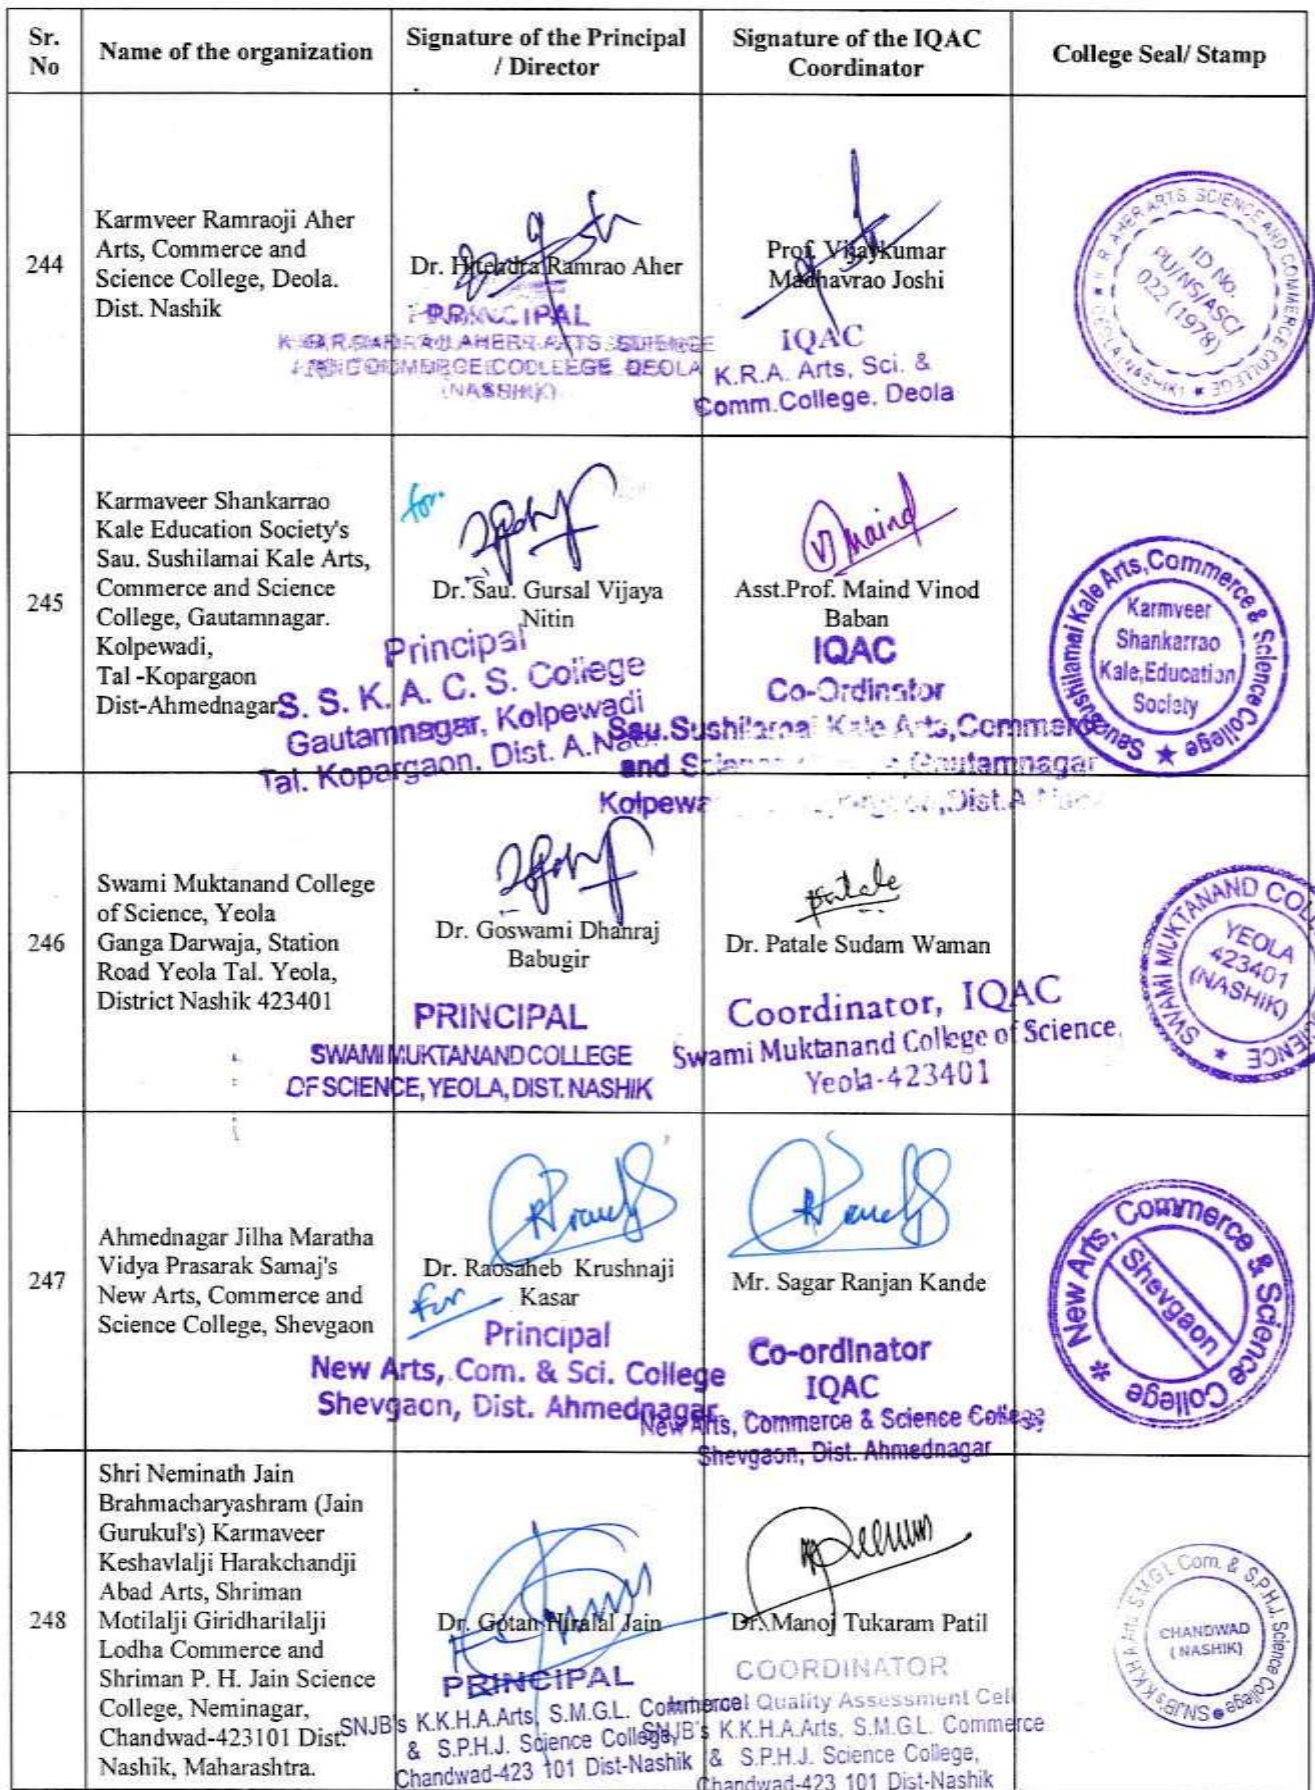 Sr. No
Name of the organization
Signature of the Principal / Director
Signature of the IQAC Coordinator
College Seal/ Stamp
244
Karmveer Ramraoji Aher
Arts, Commerce and
Science College, Deola.
Dist. Nashik
Dr. Hitendra Ramrao Aher
PRINCIPAL
COMMERCE COLLEEGE DEOLA
(NASHIK)
Prof. Vijaykumar
Madhavrao Joshi
IQAC
K.R.A. Arts, Sci. &
Comm.College, Deola
K.R. AHER ARTS, SCIENCE AND COMMERCE COLLEGE ★ DEOLA (NASHIK) ★
ID No.
PU/NS/ASC/
022 (1978)
245
Karmaveer Shankarrao
Kale Education Society's
Sau. Sushilamai Kale Arts,
Commerce and Science
College, Gautamnagar.
Kolpewadi,
Tal -Kopargaon
Dist-Ahmednagar
for
Dr. Sau. Gursal Vijaya
Nitin
Principal
S. S. K. A. C. S. College
Gautamnagar, Kolpewadi
Tal. Kopargaon, Dist. A.Nagar
Maind
Asst.Prof. Maind Vinod
Baban
IQAC
Co-Ordinator
Sau.Sushilamai Kale Arts,Commerce
and Science Gautamnagar
Dist.A
Sau.Sushilamai Kale Arts,Commerce & Science College ★
Karmveer
Shankarrao
Kale,Education
Society
246
Swami Muktanand College
of Science, Yeola
Ganga Darwaja, Station
Road Yeola Tal. Yeola,
District Nashik 423401
Dr. Goswami Dhanraj
Babugir
PRINCIPAL
SWAMI MUKTANAND COLLEGE
OF SCIENCE, YEOLA, DIST. NASHIK
Patale
Dr. Patale Sudam Waman
Coordinator, IQAC
Swami Muktanand College of Science,
Yeola-423401
SWAMI MUKTANAND COL
SCIENCE ★
YEOLA
423401
(NASHIK)
247
Ahmednagar Jilha Maratha
Vidya Prasarak Samaj's
New Arts, Commerce and
Science College, Shevgaon
Dr. Raosaheb Krushnaji
Kasar
For
Principal
New Arts, Com. & Sci. College
Shevgaon, Dist. Ahmednagar
Mr. Sagar Ranjan Kande
Co-ordinator
IQAC
New Arts, Commerce & Science College
Shevgaon, Dist. Ahmednagar
New Arts, Commerce & Science College *
Shevgaon
248
Shri Neminath Jain
Brahmacharyashram (Jain
Gurukul's) Karmaveer
Keshavlalji Harakchandji
Abad Arts, Shriman
Motilalji Giridharilalji
Lodha Commerce and
Shriman P. H. Jain Science
College, Neminagar,
Chandwad-423101 Dist.
Nashik, Maharashtra.
Dr. Gotan Hiralal Jain
PRINCIPAL
SNJB's K.K.H.A.Arts, S.M.G.L. Commerce
& S.P.H.J. Science College,
Chandwad-423 101 Dist-Nashik
Dr. Manoj Tukaram Patil
COORDINATOR
Internal Quality Assessment Cell
SNJB's K.K.H.A.Arts, S.M.G.L. Commerce
& S.P.H.J. Science College,
Chandwad-423 101 Dist-Nashik
SNJB's K.K.H.A Arts S.M.G.L Com. & S.P.H.J. Science College
CHANDWAD
(NASHIK)